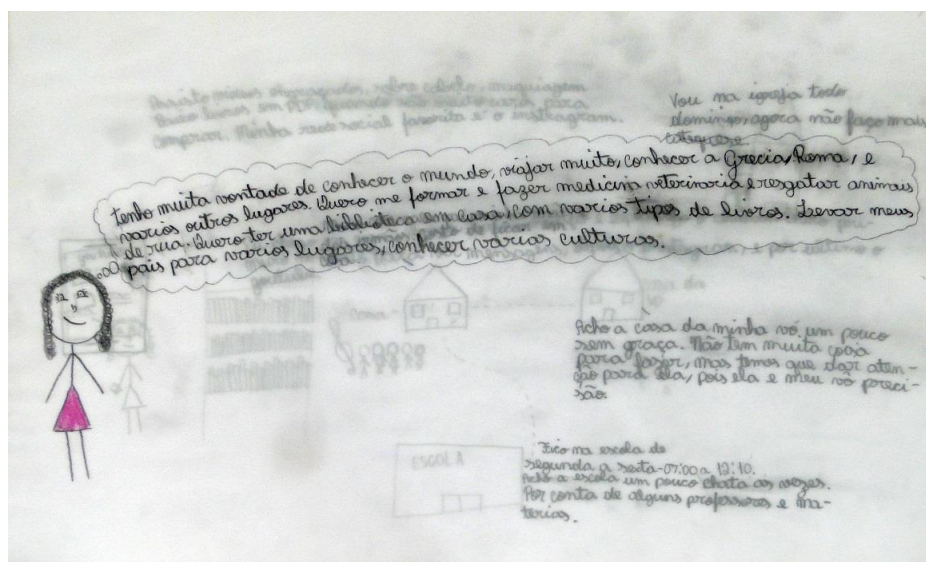 Assisto vídeos engraçados, sobre cabelo, maquiagem
Baixo livros em PDF quando são muito caros para
comprar. Minha rede social favorita é o instragram.
Vou na igreja todo
domingo, agora não faço mais
catequese
tenho muita vontade de conhecer o mundo, viajar muito, conhecer a Grecia, Roma, e
varios outros lugares. Quero me formar e fazer medicina veterinaria e resgatar animais
de rua. Quero ter uma biblioteca em casa, com varios tipos de livros. Levar meus
pais para varios lugares, conhecer varias culturas.
mensagem e por ultimo o
casa
Acho a casa da minha vó um pouco
sem graça. Não tem muita coisa
para fazer, mas temos que dar aten-
ção para ela, pois ela e meu vô preci-
são
ESCOLA
Fico na escola de
segunda a sexta-07:00 a 12:10.
Acho a escola um pouco chata as vezes.
Por conta de alguns professores e ma-
terias.